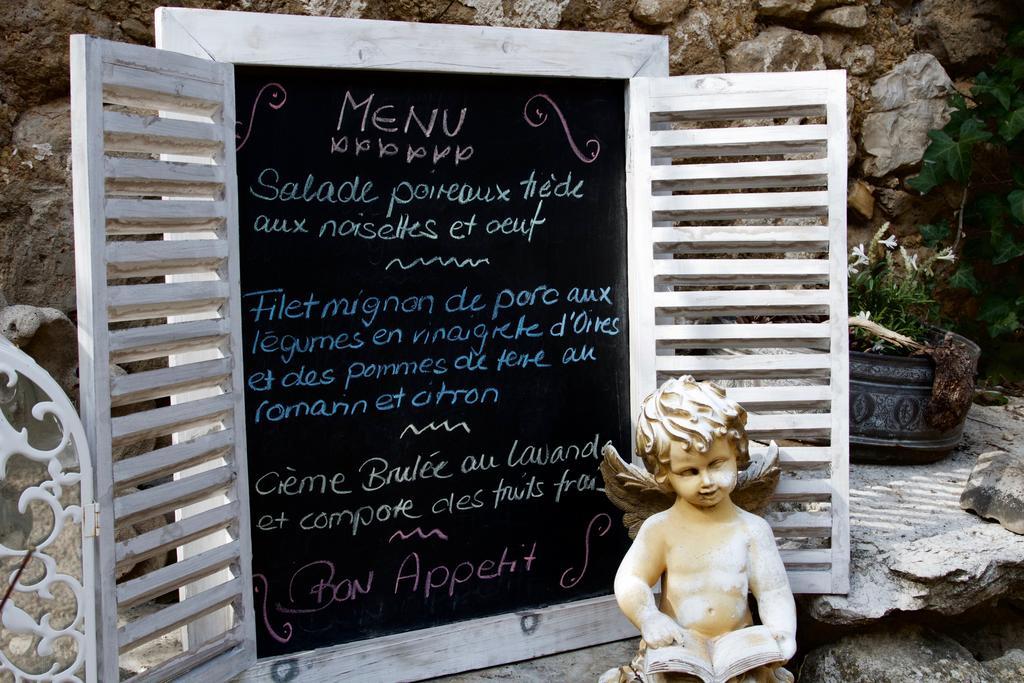 MENU
Salade poireaux tiède
aux noisettes et oeuf
Filet mignon de porc aux
légumes en vinaigrette d'Oives
et des pommes de terre au
romarin et citron
Crème Brulée au lavande
et compote des fruits frais
Bon Appetit